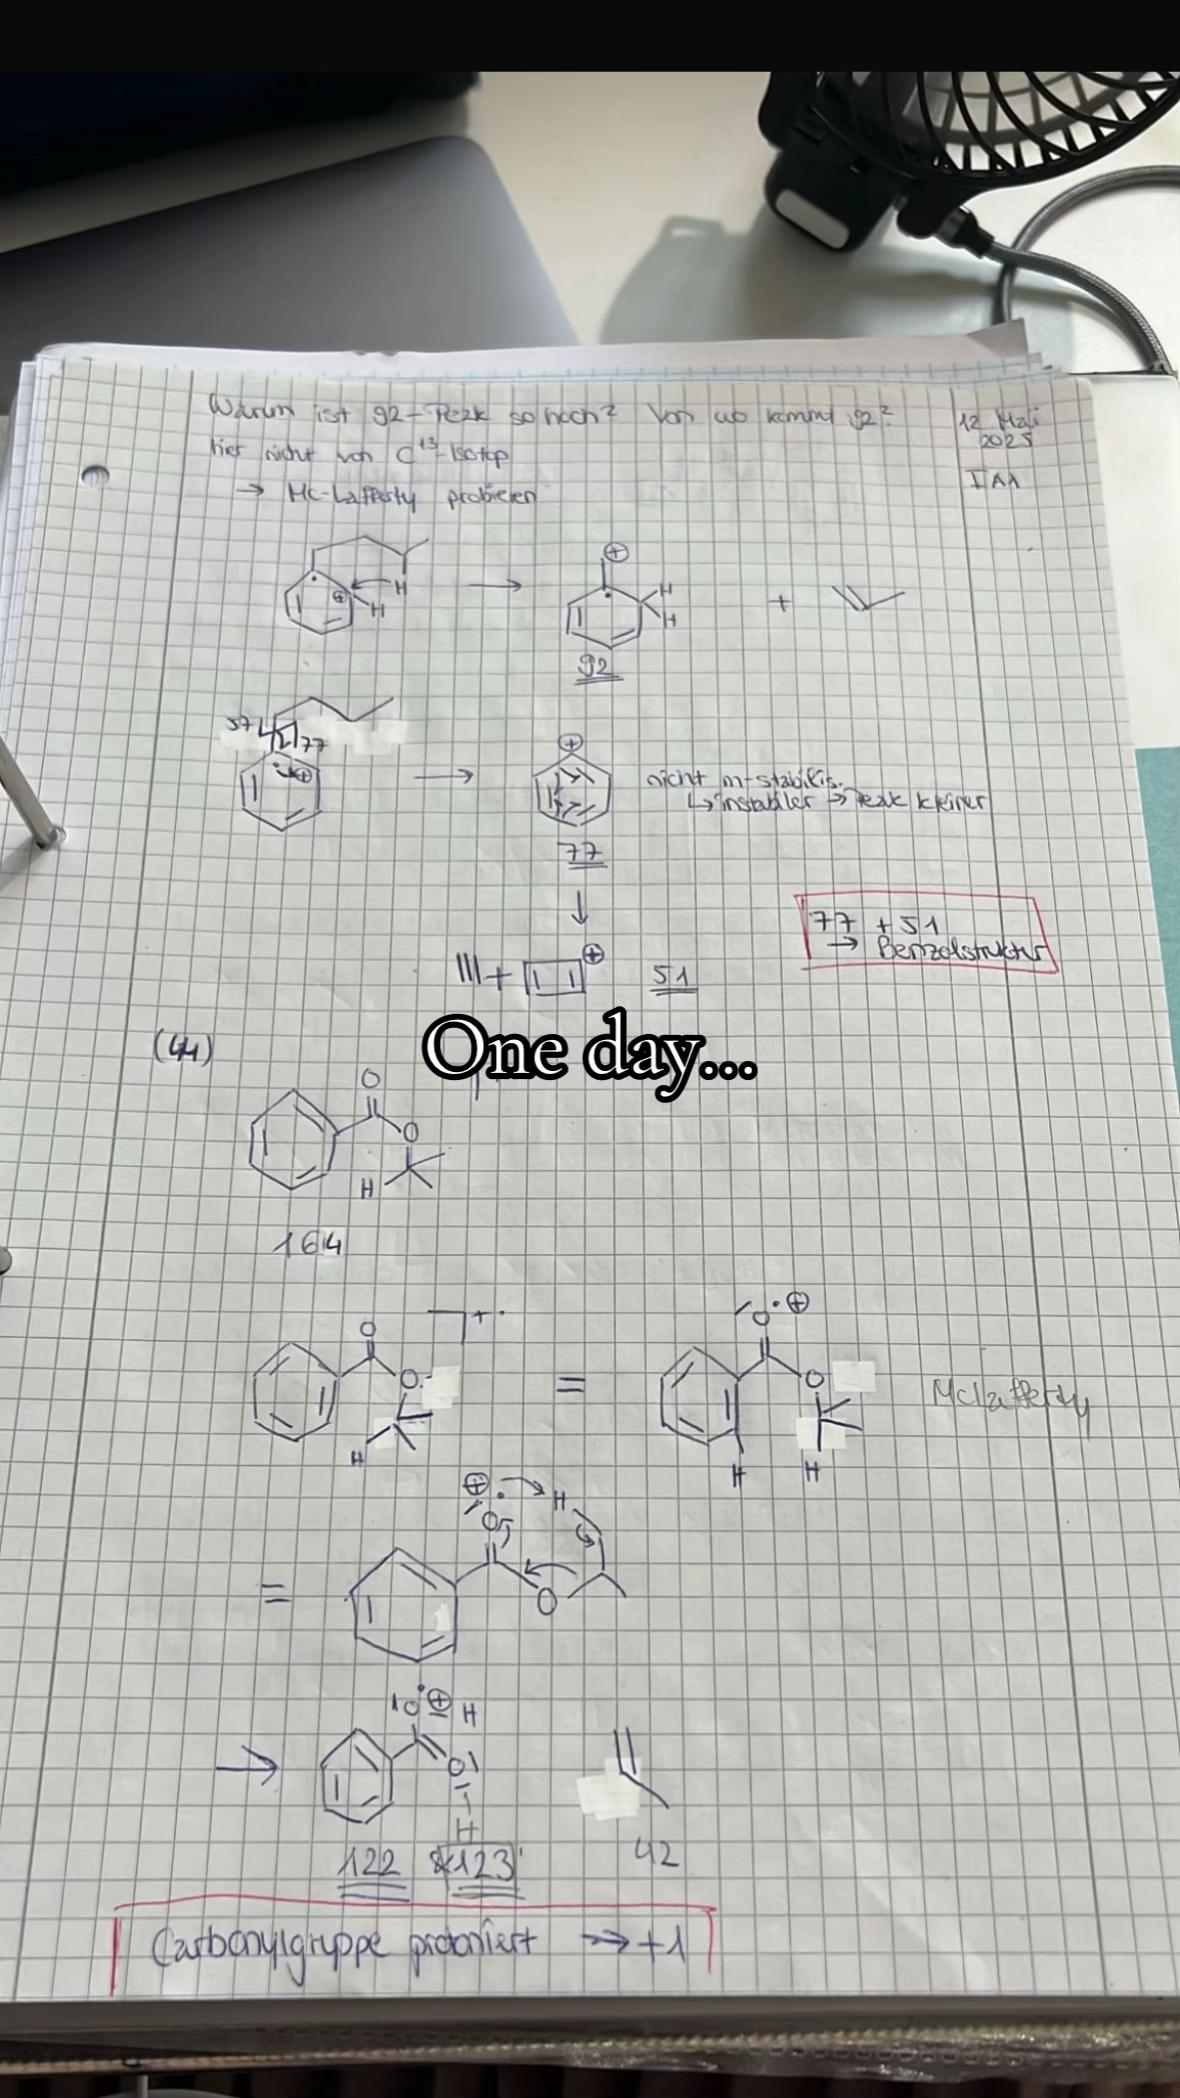 Warum ist 92-Peak so hoch? Von wo kommt 92?
12 Mai
2025
hier nicht von C13-Isotop
IIA1
→ Mc-Lafferty probieren
H
H
⊕
→
⊕
H
H
+
92
57
77
⊕
→
⊕
nicht m-stabilis.
↳ instabiler → Peak kleiner
77
↓
77 + 51
→ Benzolstruktur
+
⊕
51
One day...
(44)
O
O
H
164
O
O
H
+.
=
O
⊕
O
H
H
McLafferty
=
⊕
O
H
O
→
O
⊕
H
O
H
122 & 123
42
Carbonylgruppe protoniert → +1